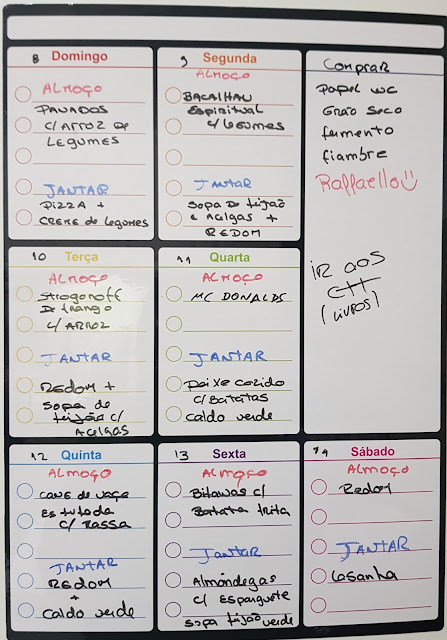 8 Domingo
ALMOÇO
PANADOS
C/ARROZ DE
LEGUMES
JANTAR
PIZZA +
CREME de LEGUMES
9 Segunda
ALMOÇO
BACALHAU
Espiritual
c/LEGUMES
JANTAR
SOPA DE FEIJÃO
E ACELGAS +
REDOM
Comprar
Papel WC
Grão Seco
fermento
fiambre
Raffaello
IR AOS
CTT
(LIVROS)
10 Terça
ALMOÇO
Strogonoff
De frango
C/ ARROZ
JANTAR
REDOM +
Sopa de
feijão c/
Acelgas
11 Quarta
ALMOÇO
MC DONALDS
JANTAR
Peixe cozido
c/Batatas
Caldo verde
12 Quinta
ALMOÇO
Carne de vaca
Estufada
c/ massa
JANTAR
REDOM
+
Caldo verde
13 Sexta
ALMOÇO
Bifanas c/
Batata frita
JANTAR
Almôndegas
c/ Esparguete
Sopa feijão verde
14 Sábado
ALMOÇO
Redom
JANTAR
Lasanha